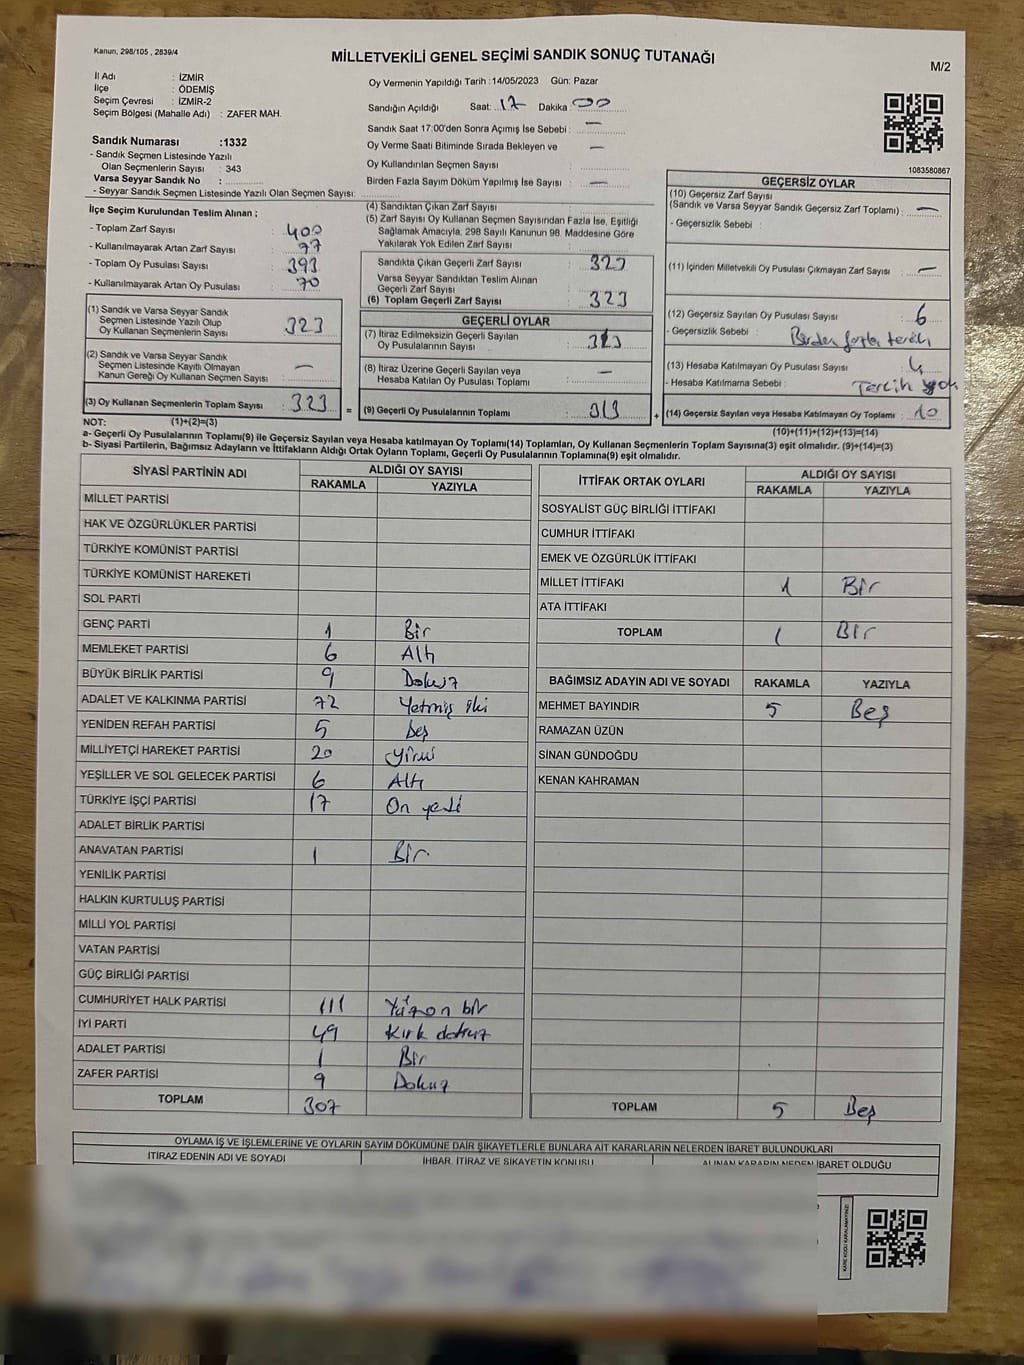 Kanun, 298/105 , 2839/4
MİLLETVEKİLİ GENEL SEÇİMİ SANDIK SONUÇ TUTANAĞI
M/2
İl Adı : İZMİR
İlçe : ÖDEMİŞ
Seçim Çevresi : İZMİR-2
Seçim Bölgesi (Mahalle Adı) : ZAFER MAH.
Oy Vermenin Yapıldığı Tarih :14/05/2023 Gün: Pazar
Sandığın Açıldığı Saat: 17 Dakika: 00
Sandık Saat 17:00'den Sonra Açımış İse Sebebi : —
Oy Verme Saati Bitiminde Sırada Bekleyen ve —
Oy Kullandırılan Seçmen Sayısı :
Birden Fazla Sayım Döküm Yapılmış İse Sayısı : —
1083580867
Sandık Numarası :1332
- Sandık Seçmen Listesinde Yazılı
Olan Seçmenlerin Sayısı : 343
Varsa Seyyar Sandık No :
- Seyyar Sandık Seçmen Listesinde Yazılı Olan Seçmen Sayısı:
İlçe Seçim Kurulundan Teslim Alınan ;
- Toplam Zarf Sayısı : 400
- Kullanılmayarak Artan Zarf Sayısı : 77
- Toplam Oy Pusulası Sayısı : 393
- Kullanılmayarak Artan Oy Pusulası : 70
(1) Sandık ve Varsa Seyyar Sandık
Seçmen Listesinde Yazılı Olup
Oy Kullanan Seçmenlerin Sayısı : 323
(2) Sandık ve Varsa Seyyar Sandık
Seçmen Listesinde Kayıtlı Olmayan
Kanun Gereği Oy Kullanan Seçmen Sayısı : —
(3) Oy Kullanan Seçmenlerin Toplam Sayısı : 323 =
(4) Sandıktan Çıkan Zarf Sayısı :
(5) Zarf Sayısı Oy Kullanan Seçmen Sayısından Fazla İse, Eşitliği
Sağlamak Amacıyla, 298 Sayılı Kanunun 98. Maddesine Göre
Yakılarak Yok Edilen Zarf Sayısı :
Sandıkta Çıkan Geçerli Zarf Sayısı : 323
Varsa Seyyar Sandıktan Teslim Alınan
Geçerli Zarf Sayısı :
(6) Toplam Geçerli Zarf Sayısı : 323
GEÇERLİ OYLAR
(7) İtiraz Edilmeksizin Geçerli Sayılan
Oy Pusulalarının Sayısı : 313
(8) İtiraz Üzerine Geçerli Sayılan veya
Hesaba Katılan Oy Pusulası Toplamı : —
(9) Geçerli Oy Pusulalarının Toplamı : 313 +
GEÇERSİZ OYLAR
(10) Geçersiz Zarf Sayısı
(Sandık ve Varsa Seyyar Sandık Geçersiz Zarf Toplamı) : —
- Geçersizlik Sebebi :
(11) İçinden Milletvekili Oy Pusulası Çıkmayan Zarf Sayısı : —
(12) Geçersiz Sayılan Oy Pusulası Sayısı : 6
- Geçersizlik Sebebi : Birden fazla tercih
(13) Hesaba Katılmayan Oy Pusulası Sayısı : 4
- Hesaba Katılmama Sebebi : Tercih yok
(14) Geçersiz Sayılan veya Hesaba Katılmayan Oy Toplamı : 10
NOT: (1)+(2)=(3) (10)+(11)+(12)+(13)=(14)
a- Geçerli Oy Pusulalarının Toplamı(9) ile Geçersiz Sayılan veya Hesaba katılmayan Oy Toplamı(14) Toplamları, Oy Kullanan Seçmenlerin Toplam Sayısına(3) eşit olmalıdır. (9)+(14)=(3)
b- Siyasi Partilerin, Bağımsız Adayların ve İttifakların Aldığı Ortak Oyların Toplamı, Geçerli Oy Pusulalarının Toplamına(9) eşit olmalıdır.
SİYASİ PARTİNİN ADI ALDIĞI OY SAYISI
RAKAMLA YAZIYLA
MİLLET PARTİSİ
HAK VE ÖZGÜRLÜKLER PARTİSİ
TÜRKİYE KOMÜNİST PARTİSİ
TÜRKİYE KOMÜNİST HAREKETİ
SOL PARTİ
GENÇ PARTİ 1 Bir
MEMLEKET PARTİSİ 6 Altı
BÜYÜK BİRLİK PARTİSİ 9 Dokuz
ADALET VE KALKINMA PARTİSİ 72 Yetmiş iki
YENİDEN REFAH PARTİSİ 5 beş
MİLLİYETÇİ HAREKET PARTİSİ 20 yirmi
YEŞİLLER VE SOL GELECEK PARTİSİ 6 Altı
TÜRKİYE İŞÇİ PARTİSİ 17 On yedi
ADALET BİRLİK PARTİSİ
ANAVATAN PARTİSİ 1 Bir
YENİLİK PARTİSİ
HALKIN KURTULUŞ PARTİSİ
MİLLİ YOL PARTİSİ
VATAN PARTİSİ
GÜÇ BİRLİĞİ PARTİSİ
CUMHURİYET HALK PARTİSİ 111 Yüzon bir
İYİ PARTİ 49 Kırk dokuz
ADALET PARTİSİ 1 Bir
ZAFER PARTİSİ 9 Dokuz
TOPLAM 307
İTTİFAK ORTAK OYLARI ALDIĞI OY SAYISI
RAKAMLA YAZIYLA
SOSYALİST GÜÇ BİRLİĞİ İTTİFAKI
CUMHUR İTTİFAKI
EMEK VE ÖZGÜRLÜK İTTİFAKI
MİLLET İTTİFAKI 1 Bir
ATA İTTİFAKI
TOPLAM 1 Bir
BAĞIMSIZ ADAYIN ADI VE SOYADI RAKAMLA YAZIYLA
MEHMET BAYINDIR 5 Beş
RAMAZAN ÜZÜN
SİNAN GÜNDOĞDU
KENAN KAHRAMAN
TOPLAM 5 Beş
OYLAMA İŞ VE İŞLEMLERİNE VE OYLARIN SAYIM DÖKÜMÜNE DAİR ŞİKAYETLERLE BUNLARA AİT KARARLARIN NELERDEN İBARET BULUNDUKLARI
İTİRAZ EDENİN ADI VE SOYADI İHBAR, İTİRAZ VE ŞİKAYETİN KONUSU ALINAN KARARIN NEDEN İBARET OLDUĞU
KARE KODU KARALAMAYINIZ!